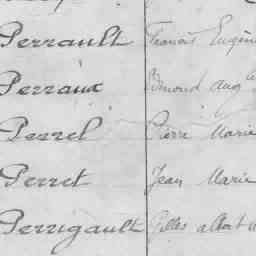 Perrault Francis Eugène
Perraux Edmond Aug
Perrel Pierre Marie
Perret Jean Marie
Perrigault Gilles Albert